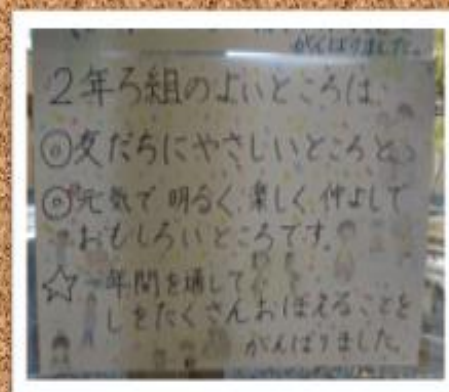 がんばりました。
２年ろ組のよいところは、
◎友だちにやさしいところと、
◎元気で明るく、楽しく、仲よしで
おもしろいところです。
☆一年間を通して
しをたくさんおぼえることを
がんばりました。